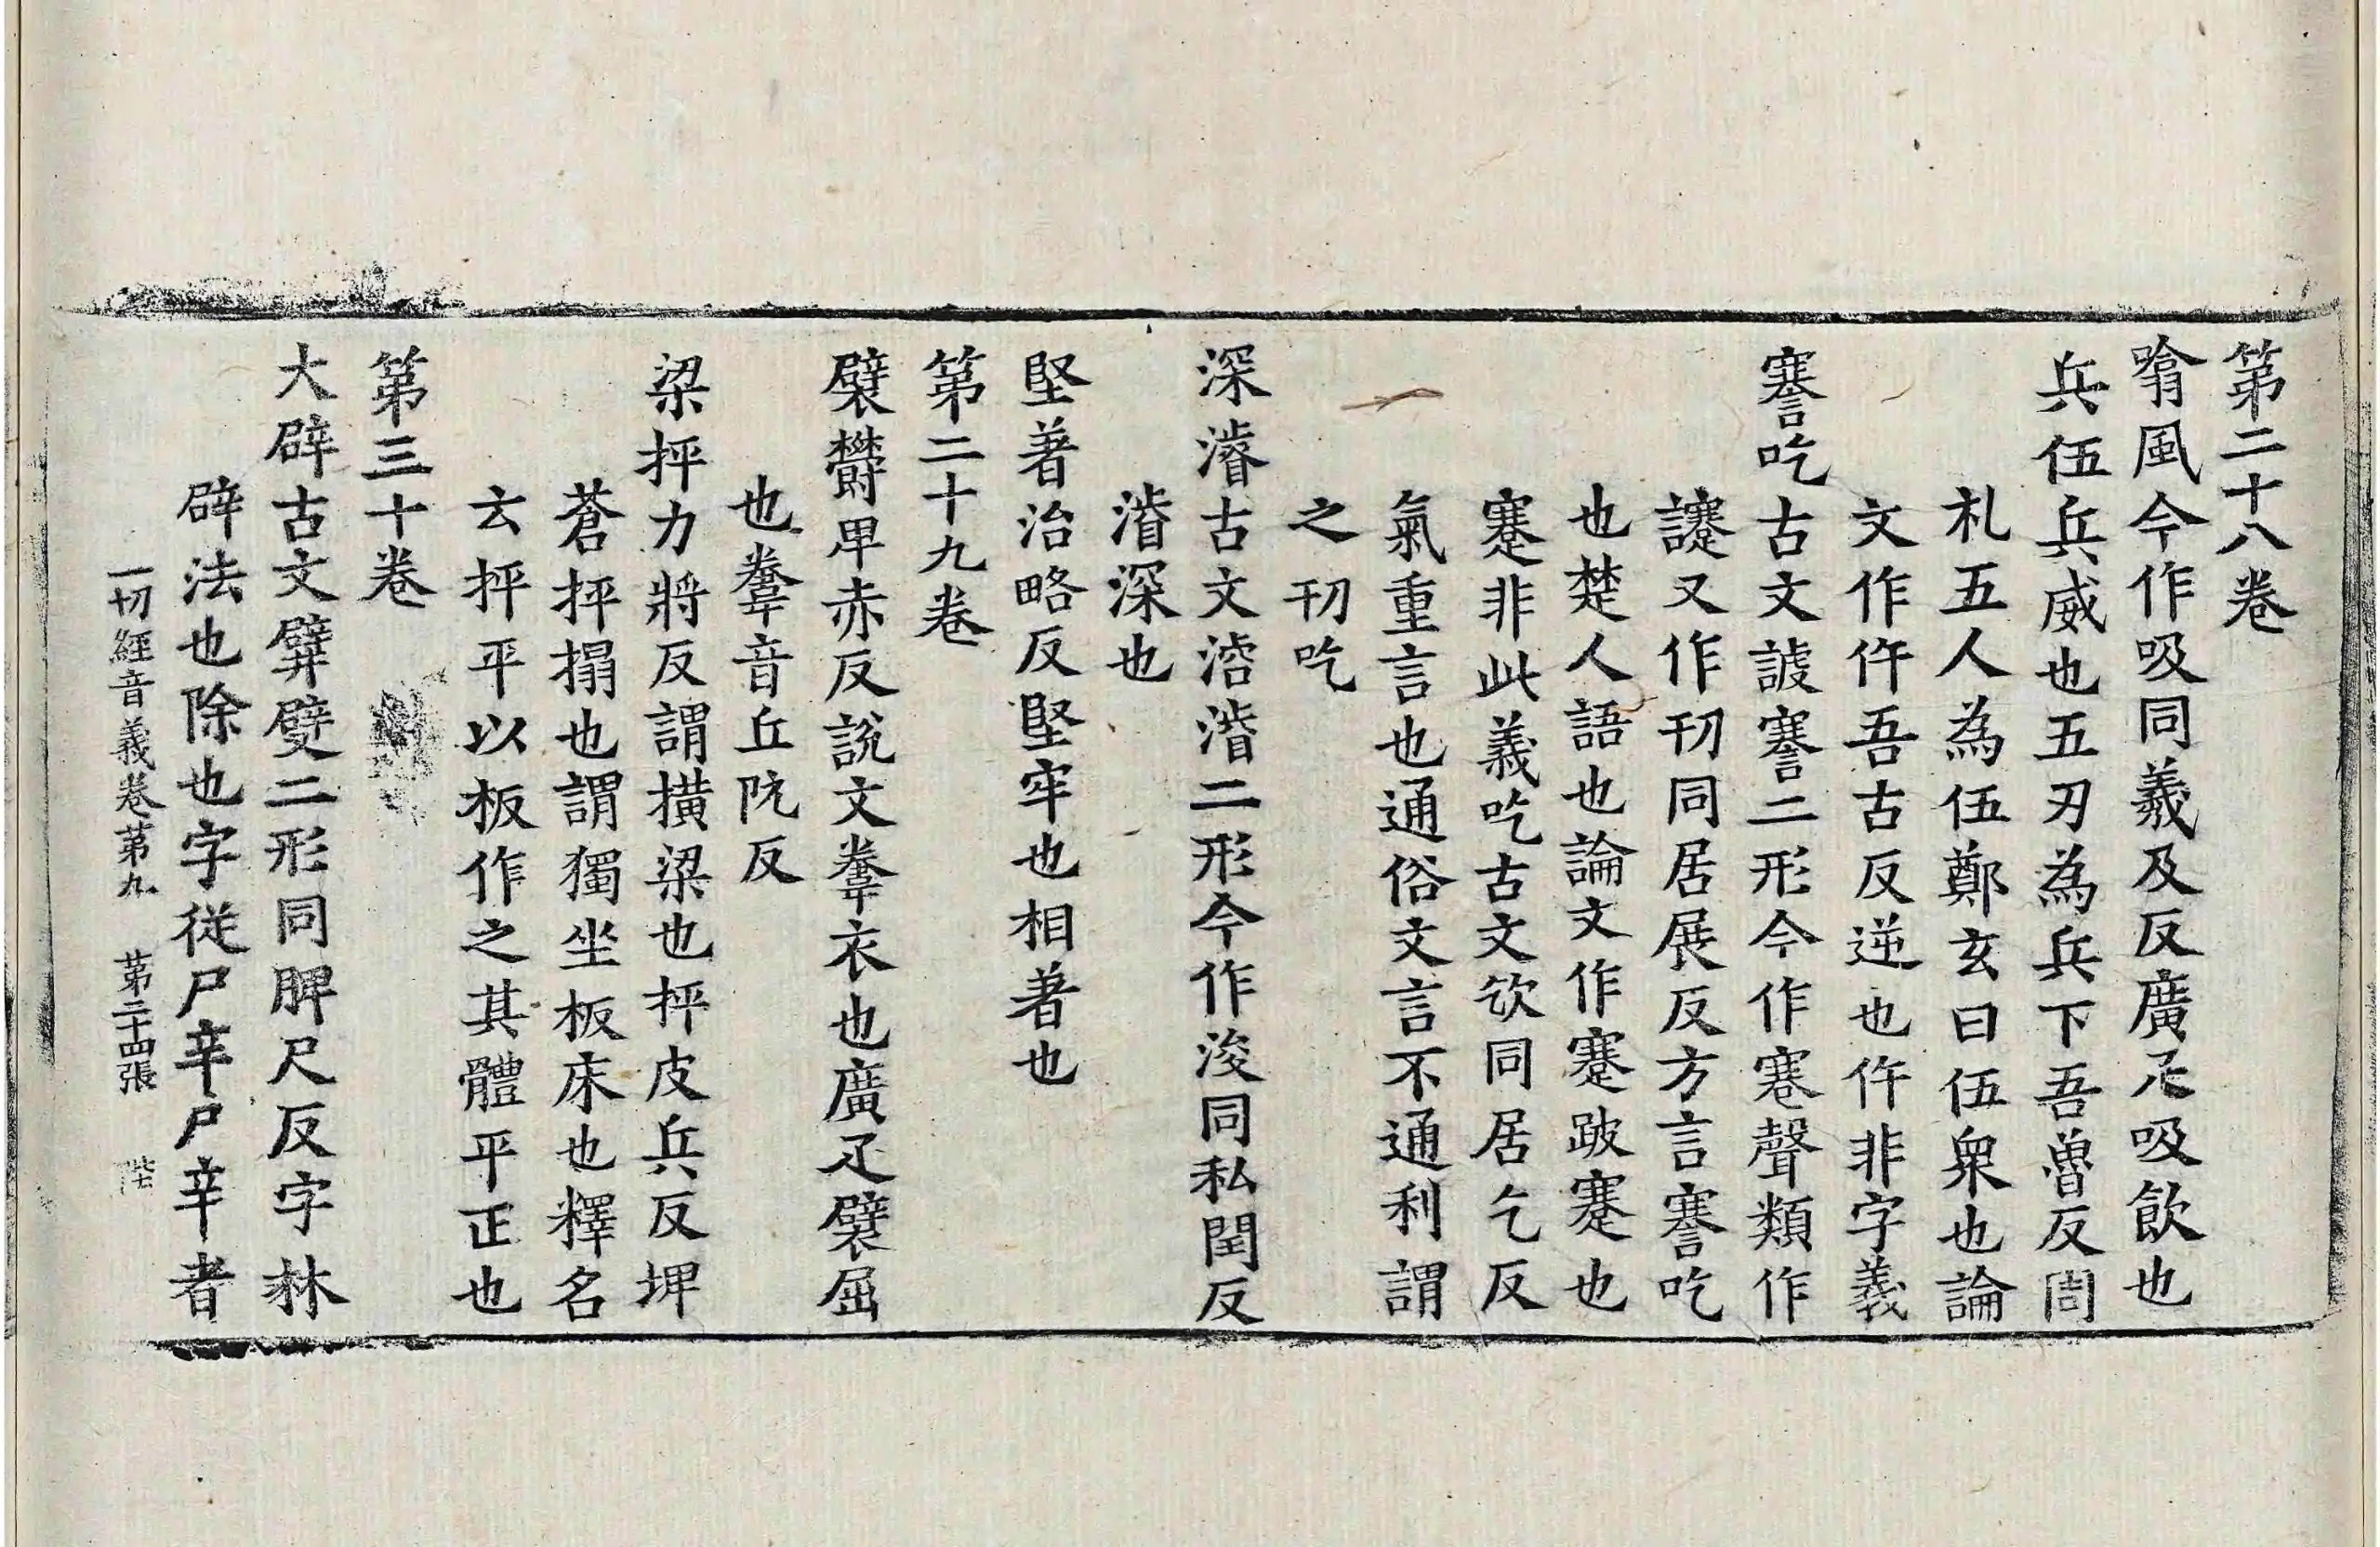 第二十八卷
噏風今作吸同羲及反廣疋吸飲也
兵伍兵威也五刃為兵下吾魯反周
札五人為伍鄭玄曰伍衆也論
文作仵吾古反逆也仵非字義
謇吃古文謯謇二形今作蹇聲類作
讝又作刃同居展反方言謇吃
也楚人語也論文作蹇跛蹇也
蹇非此義吃古文欬同居乞反
氣重言也通俗文言不通利謂
之刃吃
深濬古文濬㴠二形今作浚同私閏反
濬深也
堅著治略反堅牢也相著也
第二十九卷
襞欝卑赤反說文韏衣也廣疋襞屈
也韏音丘阮反
梁抨力將反謂撗梁也抨皮兵反埤
蒼抨搨也謂獨坐板床也釋名
云抨平以板作之其體平正也
第三十卷
大辟古文㢸𨐨二形同脾尺反字林
辟法也除也字從尸辛尸辛者
一切經音義卷第九 第二十四張